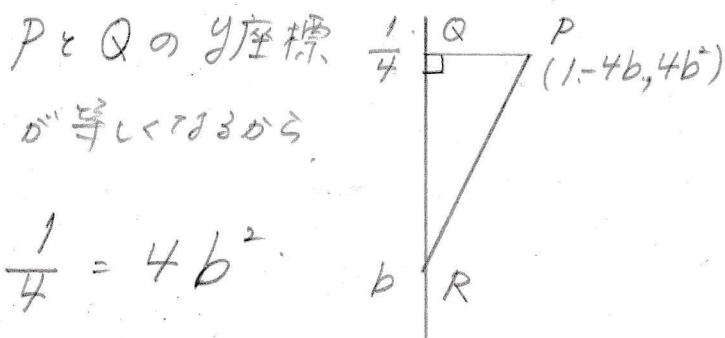 PとQのy座標
が等しくなるから
1/4 = 4b²
1/4 Q P
(1-4b, 4b²)
b R